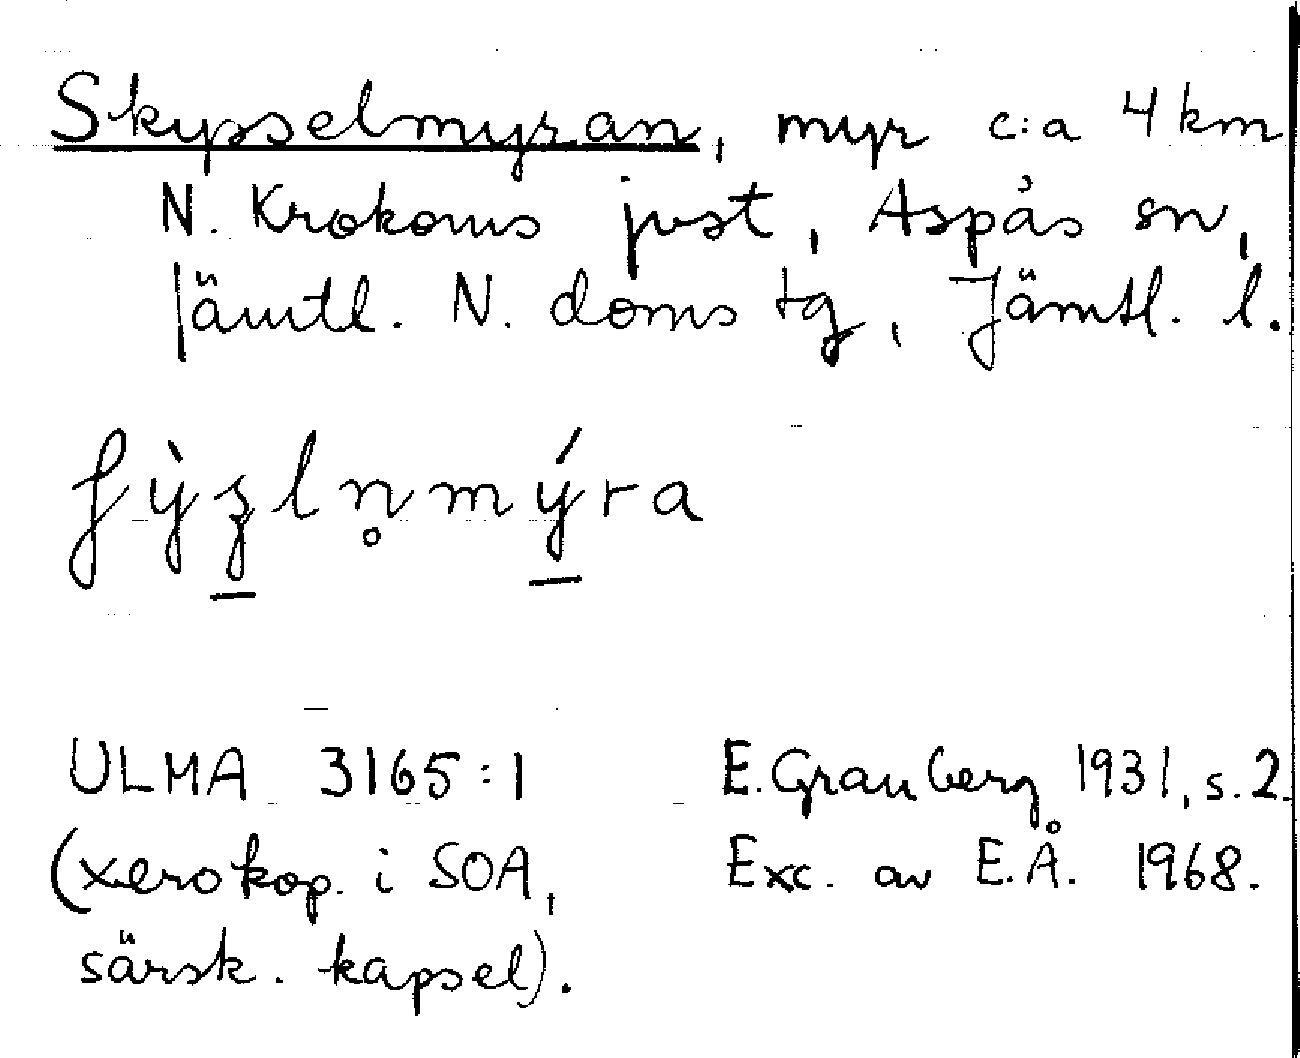 Skypselmyran, myr c:a 4 km
N. Krokoms jvst, Aspås sn,
Jämtl. N. doms tg, Jämtl. l.
ʃỳʒln̥mýra
ULMA 3165:1
(xerokop. i SOA,
särsk. kapsel).
E. Granberg 1931, s. 2.
Exc. av E.Å. 1968.